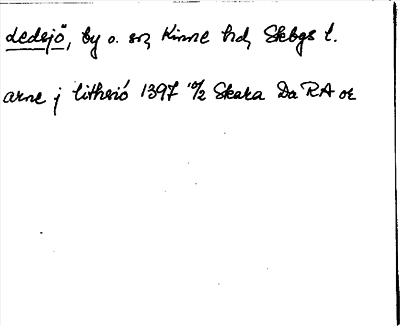 Ledsjö, by o. sn, Kinne hd, Skbgs l.
arne j lithsió 1397 10/2 Skara Da RA or